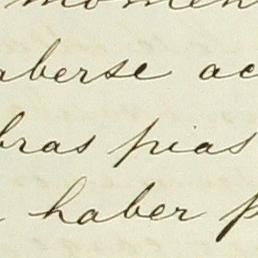 momen
aberse ac
bras pias
haber p